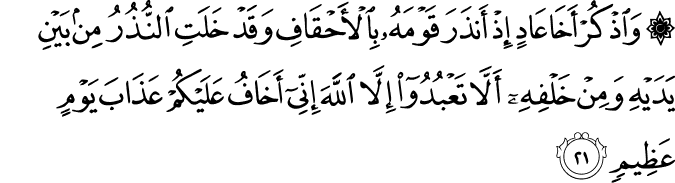 ۞ وَٱذْكُرْ أَخَا عَادٍ إِذْ أَنذَرَ قَوْمَهُۥ بِٱلْأَحْقَافِ وَقَدْ خَلَتِ ٱلنُّذُرُ مِنۢ بَيْنِ
يَدَيْهِ وَمِنْ خَلْفِهِۦٓ أَلَّا تَعْبُدُوٓا۟ إِلَّا ٱللَّهَ إِنِّىٓ أَخَافُ عَلَيْكُمْ عَذَابَ يَوْمٍ
عَظِيمٍ ٢١